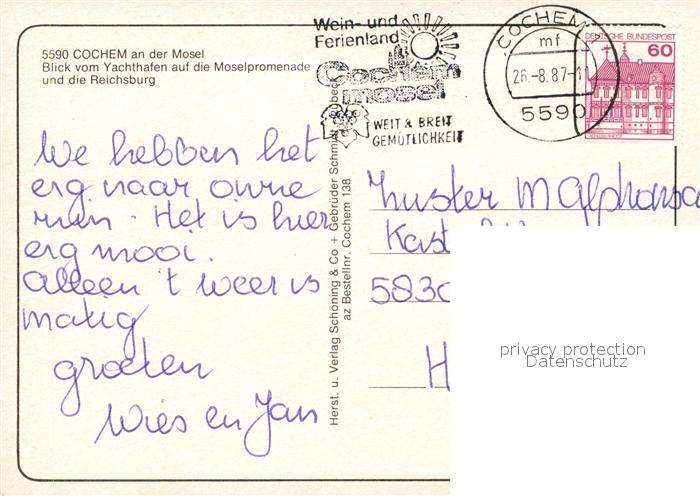 5590 COCHEM an der Mosel
Blick vom Yachthafen auf die Moselpromenade
und die Reichsburg
Wein- und
Ferienland
Cochem
mosel
WEIT & BREIT
GEMÜTLICHKEIT
COCHEM
mf
26.-8.87-11
5590
DEUTSCHE BUNDESPOST
60
We hebben het
erg naar onze
zin. Het is hier
erg mooi.
Alleen 't weer is
matig
groeten
Wies en Jan
Herst. u. Verlag Schöning & Co + Gebrüder Schmidt
az Bestellnr. Cochem 138
Zuster M Alphonsa
Kast
5830
H
privacy protection
Datenschutz